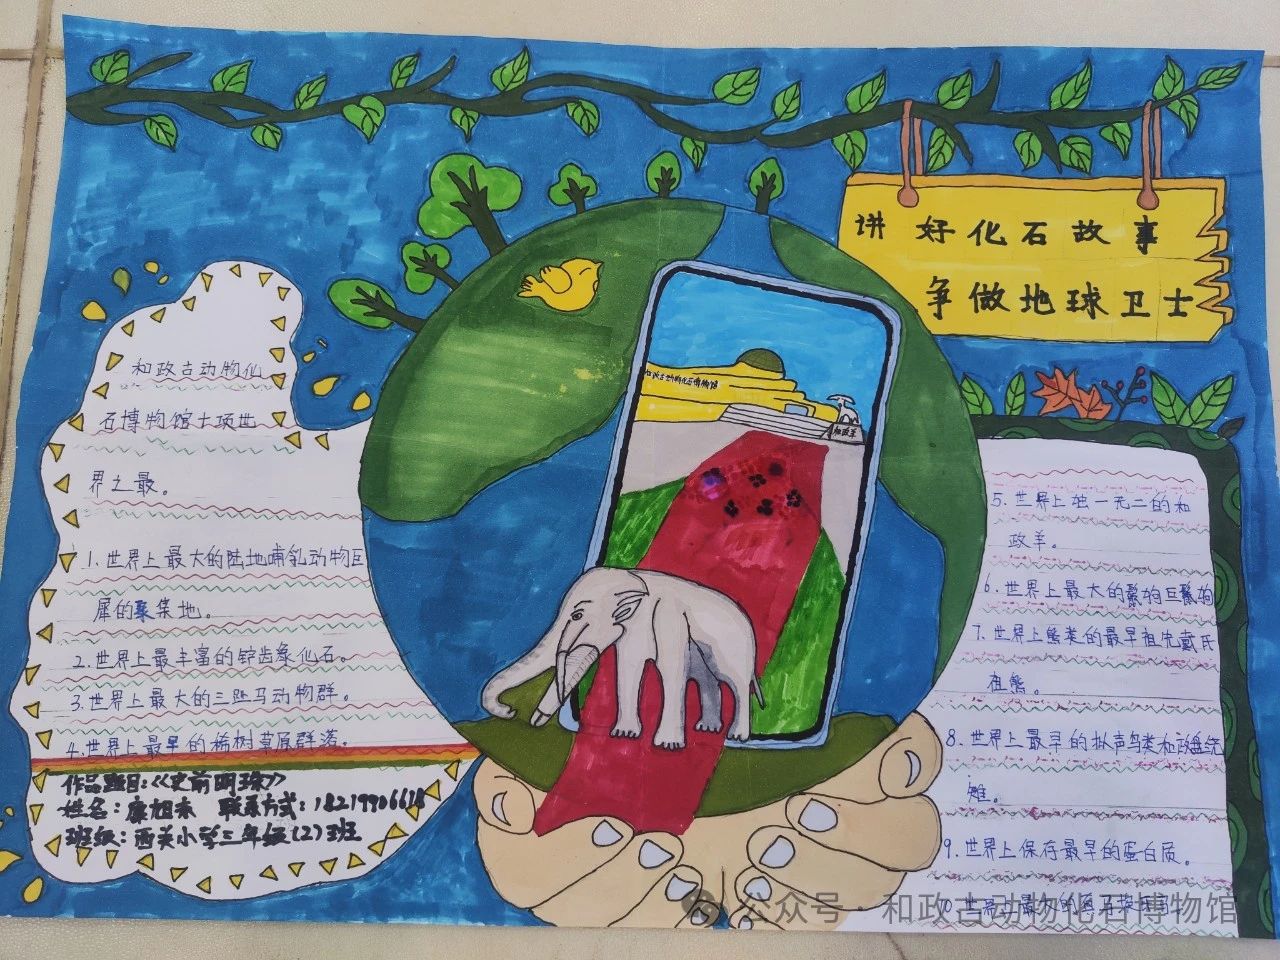 讲好化石故事
争做地球卫士
和政古动物化石博物馆
和政羊
和政古动物化
石博物馆十项世
界之最。
1.世界上最大的陆地哺乳动物巨
犀的聚集地。
2.世界上最丰富的铲齿象化石。
3.世界上最大的三趾马动物群。
4.世界上最早的稀树草原群落。
作品题目:《史前明珠》
姓名: 联系方式:18219906618
班级:西关小学三年级(2)班
5.世界上独一无二的和
政羊。
6.世界上最大的鬣狗巨鬣狗
7.世界上熊类的最早祖先戴氏
祖熊。
8.世界上最早的拟声鸟类和政盘绕
雉。
9.世界上保存最早的蛋白质。
公众号·和政古动物化石博物馆